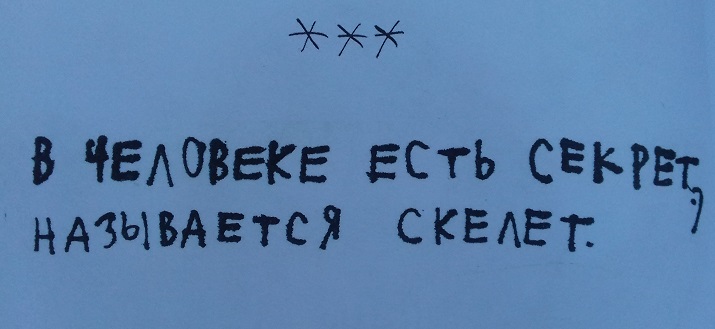 ***
В ЧЕЛОВЕКЕ ЕСТЬ СЕКРЕТ,
НАЗЫВАЕТСЯ СКЕЛЕТ.